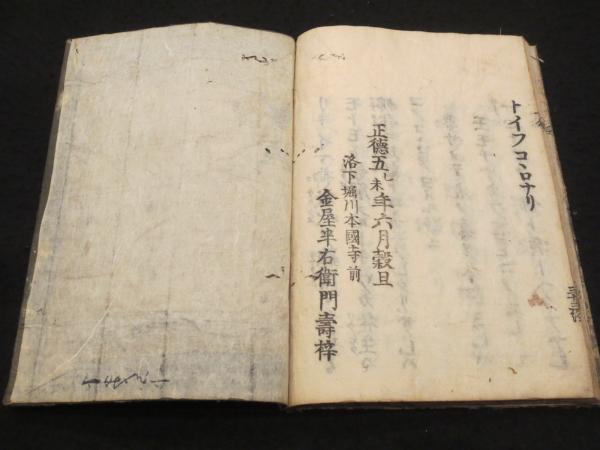 トイフコヽロナリ
正德五乙未年六月穀旦
洛下堀川本國寺前
金屋半右衛門壽梓